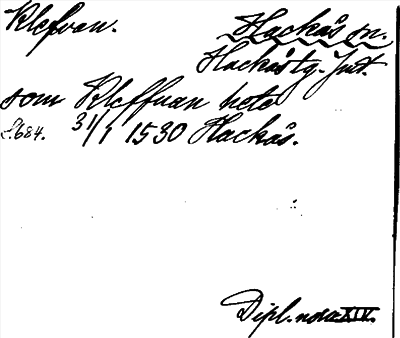 Kleffuan. Hackås sn.
Hackås tg. Jmt.
som Kleffuan heta
S. 684. 31/1 1530 Hackås.
Dipl. nor. XIV.